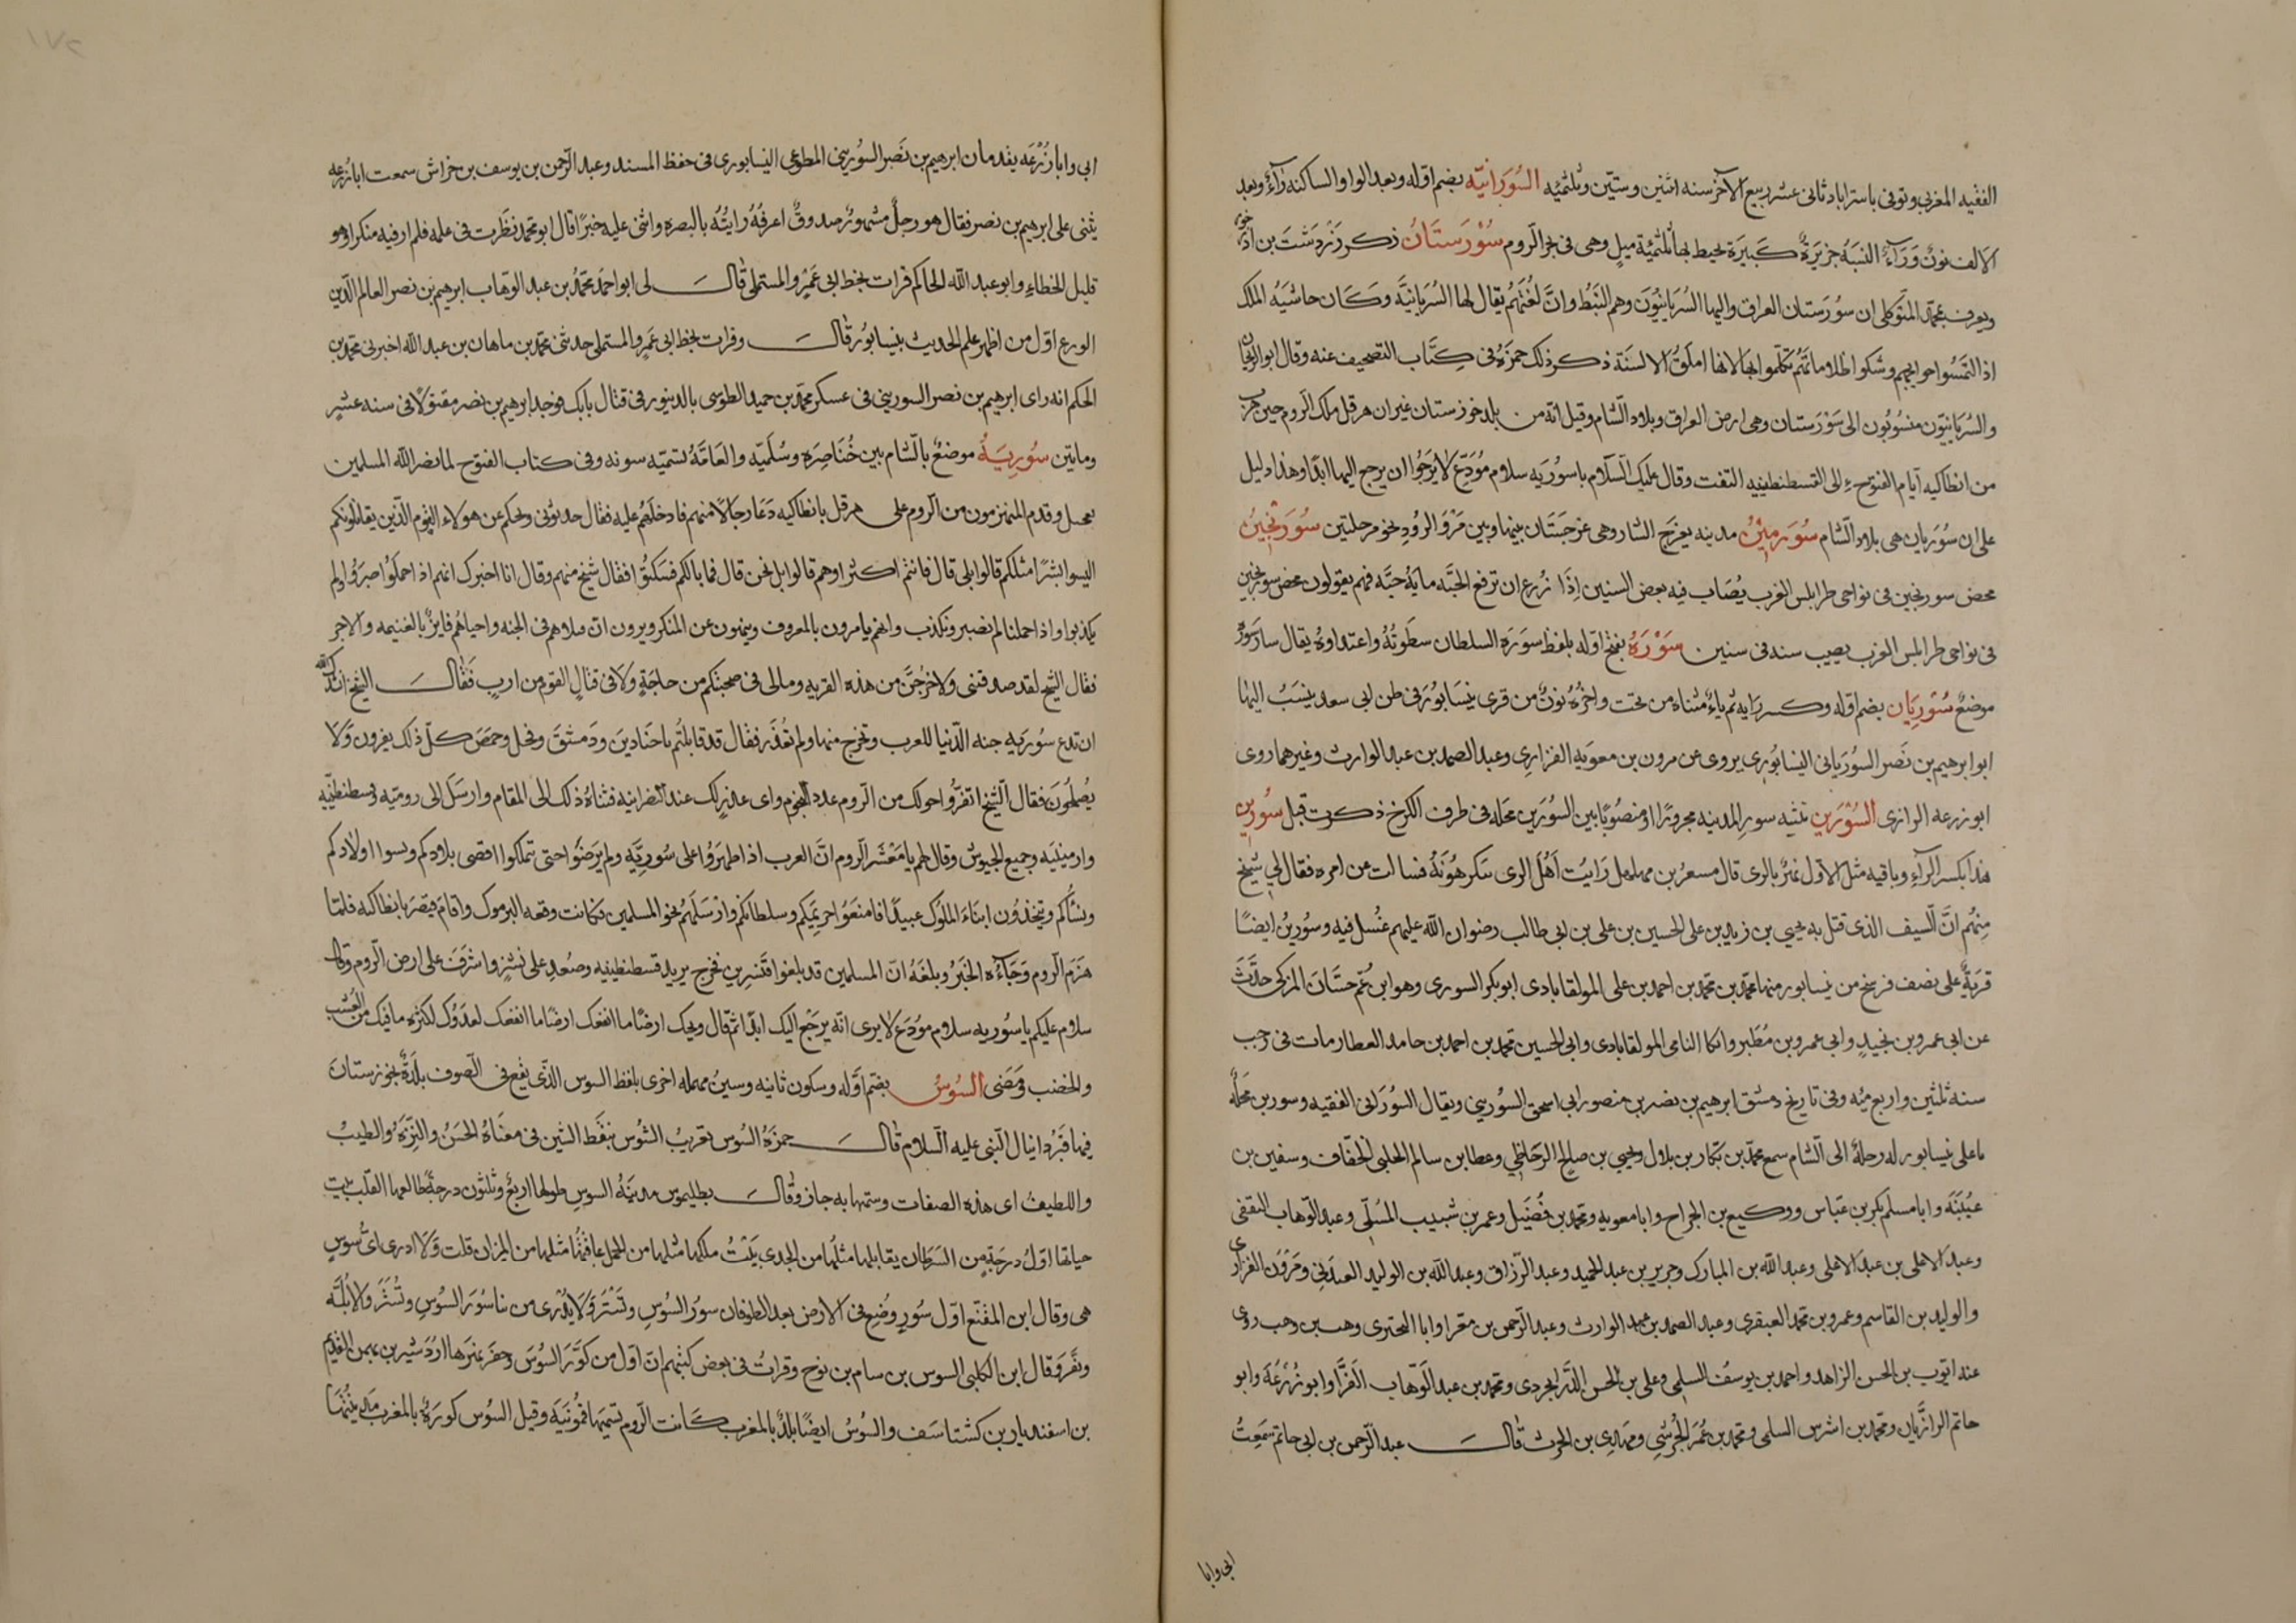 الفقيه المغربي وتوفي باستراباد ثاني عشر ربيع الآخر سنه اثنين وستين وثلثمئه السُّوَرَانيّه بضم اوّله وبعد الواو الساكنه رآءٌ وبعد
الالف نونٌ وَرَآءٌ النسَبَهُ جزيَرةٌ كَبيَرَة يحيط بها ثلثمئة ميلٍ وهي في بحر الروم سُوْرَستَانُ ذكر زَرْدَشْتَ بن آذرخور
ويعرف بمحمّد المتوكلى ان سوُرَستان العراق واليها السُرَيانيُّونَ وهم النَبَطُ وانَّ لغُتَهُم يقال لها السُرَيانيَّة وكَان حاشيَهُ الملك
اذا التَمسُوا حوايجهم وشكوا ظلاماتهُم تكلّموا بها لانها املَقُ الالسنَة ذكر ذلك حمزَهُ في كِتَاب التصحيف عنه وقال ابو الريحان
والسُرَيانيّون منسُوبُون الى سُوْرَستان وهي ارض العراق وبلاد الشام وقيل انّه من بلد خوزستان غير ان هرقل ملك الروم حين هرب
من انطاكيه ايّام الفتوح الى القسطنطينيه التفت وقال عليك السّلام يا سوُرَيه سلام مُوَدّع لا يَرجُوا ان يرجع اليها ابدًا وهذا دليل
على ان سُورَيان هي بلاد الشام سُوَرَمِيْنُ مدينه بغرَجِ الشار وهي غرجَستَان بينها وبين مَرْوَ الرُوذِ نحو مرحلتين سُورَنجِينُ
محض سورنجين في نواحي طرابلس الغرب يصُاب فيه بعض السنين اِذَا زُرع ان ترفع الحبّه مايَهُ حبَّه فهم يقولون محض سورنجين
في نواحي طرابلس الغرب يصيب سنه في سنين سَوْرَهُ بفتح اوّله بلفظ سوَرَه السلطان سطَوتُهُ واعتداوهُ يقال سار سَورٌ
موضعٌ سُوْريَان بضم اوّله وكسر رَايه ثم ياءٌ مثناه من تحت وآخرُهُ نونٌ من قرى نيسَابُورَ في ظن ابي سعد ينسَبُ اليها
ابو ابرهيم بن نَصر السُورَياني النيسابُوري يروي عن مرون بن معوَيَه الفزاري وعبد الصمد بن عبد الوارث وغيرهما روى
ابو زرعه الرازى السُوْرَينِ تثنيه سورِ المدينه مجرورًا او منصُوبًا بين السُوَرين محَله في طرف الكرخ ذكرت قبل سُوْرِينِ
هذا بكسر الرآءِ وباقيه مثل الاوّل نهرٌ بالرى قال مسعر بن مهلهل رَايت اَهْلَ الرى تنكرهُونَهُ فسالت عن امره فقال لي شيخ
مِنهُم انَّ السيف الذى قتل به يحيي بن زيد بن على الحسين بن على بن ابي طالب رضوان الله عليهم غسُل فيه وسوُرينُ ايضًا
قريَةٌ على نصف فرسخ من نيسابور منها محمّد بن محمّد بن احمد بن على المولقابادى ابو بكر السورى وهو ابن عم حسَّان المزكى حدَّث
عن ابي عمرو بن نجيد وابي عمرو بن مَطر وانكا النامى المولقابادى وابي الحسين محمد بن احمد بن حامد العطار مات في رجب
سنه ثلثين واربع مئه وفى تاريخ دمشق ابرهيم بن نصر بن منصور ابي اسحق السُوريني ويقال السُوَرَاني الفقيه وسورين محَله
باعلى نيسابور له رحلةٌ الى الشام سمع محمّد بن بكار بن بلال ويحيي بن صالح الوحاظى وعطا بن سالم الحلبي الخفاف وسفين بن
عيُيَنَه وابا مسلم بكر بن عبّاس ووكيع بن الجراح وابا معويه ومحمد بن فُضَيل وعمر بن شبيب المُسلى وعبد الوّهاب الثقفى
وعبد الاعلى بن عبد الاعلى وعبد الله بن المبارك وجرير بن عبد الحميد وعبد الرّزاق وعبد الله بن الوليد العَدَنى ومَرْوَن الفزارى
والوليد بن القاسم وعمرو بن محمد العبقرى وعبد الصمد بن عبد الوارث وعبد الرّحمن بن مقرا وابا البحترى وهب بن وهب روى
عند ايّوب بن الحسن الزاهد واحمد بن يوسف السلمى وعلى بن الحسن الدَرَابجردى ومحمد بن عبد الوّهاب الفرّا وابو زُرْعَهَ وابو
حاتم الرازيّان ومحمد بن اشرس السلمى ومحمد بن عُمَر الجُرَشى ومهدى بن الحرث قالَ عبد الرّحمن بن ابى حاتم سَمعتُ
ابى وابا
ابي وابا زُرْعَه يقدمان ابرهيم بن نَصر السُوريني المطوعى النيسابورى في حفظ المسند وعبد الرّحمن بن يوسف بن خراش سمعت ابا زرعه
يثنى على ابرهيم بن نصر فقال هو رجلٌ مشهورٌ صدوقٌ اعرفُهُ رايتُهُ بالبصره واثنى عليه خيرًا قال ابو محمد نظَرت في علمه فلم ارفيه منكرا وهو
قليل الخطاءِ وابو عبد الله الحاكم قرات بخط ابي عَمرٍو المستملى قالَ لى ابو احمَد محمّد بن عبد الوّهاب ابرهيم بن نصر العالم الدّين
الورع اوّل من اظهر علم الحديث بنيسابُور قالَ وقرات بخط ابي عَمرٍو المستملى حدثنى محمّد بن ماهان بن عبد الله اخبرنى محمّد بن
الحكم انه راى ابرهيم بن نصر السورينى في عسكر محمّد بن حميد الطوسى بالدينور في قتال بابك فوجد ابرهيم بن نصر مقتولًا في سنه عشر
وماتين سُورِيَةُ موضعٌ بالشام بين خُنَاصِرَه وسُلَميّه والعَامّةُ تسَميّه سونه وفى كتاب الفتوح لما نصر الله المسلمين
بفحل وقدم المنهزمون من الروم على هرقل بانطاكيه دَعَا رجَالاً منهم فادخلَهُم عليه فقال حدثونى ويحكم عن هولاء القوم الذّين يقاتلُونكم
اليسوا بشَرًا مثلكم قالوا بلى قال فانتم اكثر او هم قالوا بل نحن قال فما بالكم فسَكتوُا فقال شيخ منهم وقال انا اخبرك انهم اذا حملوُا صَبروُا ولم
يكذبوا واذا حملنا لم نصبر ونكذب وانهم يامرون بالمعروف وينهون عن المنكر ويرون ان قتلاهم في الجنه واحياهُم فايزٌ بالغنيمه والاجر
فقال الشيخ لقد صدقتنى ولاخرُجنَّ من هذه القريه ومالى في صحبتكم من حاجةٍ ولا في قتال القوم من اربٍ فَقالَ الشيخ انشدك الله
ان تدع سُورَيه جنه الدّنيا للعرب وتخرج منها ولم تُعُذَر فقال قد قابلتُم باجنَادينَ ودَمشقَ وفحل وحمصَ كلّ ذلك يفرون وَلا
يُصلحُونَ فقال الشّيخ اتفرّ وَاحولك من الروم عدد النجوم واى عذرٍلك عند النصرانيه فثناهُ ذلك الى المقام وارسَل الى روميَه وقسطنطنيّه
وارمينيَه وجميع الجيوش وقال لهم يا مَعْشرَ الروم انَّ العرب اذا ظهَرَوُا على سُوريَّه ولم يَرضَوُا حتى تملكوا اقصى بلادكم ويسبوا اولادكم
ونسُأكم ويتخذوُن ابناءَ الملوُك عبيدًا فامنعَوُا حريمَكم وسلطانكم وارَسَلَهُم نحو المسلمين فكانت وقعه اليرموك واقامَ قيصَر بانطاكيه فلمّا
هزَمَ الرّوم وَجَآءه الخَبرُ وبلغَهُ انّ المسلمين قد بلغوا قنسرين فخرج يريد قسطنطينيه وصعُد على نشزٍ واشَرفَ على ارض الروم وقال
سلام عليكم يا سوُريه سلام موُدَع لا يرى انّه يَرجعُ اليك ابدًا ثم قال ويحك ارضًا ما انفعك ارضًا ما انفعك لعدوُّك لكثره ما فيك من العُشب
والخضب وَمَضى السُوسُ بضمّ اوَّله وسكون ثانيه وسينٌ مهمله اخرى بلفظ السوس الذّى يقع في الصوف بلدَةٌ بخوزستان
فيها قبَرُ دانيال النبى عليه السّلام قالَ حمزَهُ السُوس تعَريبُ الشوُس بنقَط الشين فى معَناهُ الحَسَنُ والنِزَهُ والطيبُ
واللطيفُ اى هذه الصفات وسَمتها به جاز وقالَ بطليموس مدينَهُ السوس طولها اربعٌ وثلثون درجةً طالعها القلب بيت
حياتها اوّلُ درجَةٍ من السَرَطان يقابلها مثلُها من الجدى بَيْتُ ملكها مثلها من الحمل عاقبتُها مثلها من الميزان قلت وَلا ادرى اىّ سُوسٍ
هى وقال ابن المقفّع اوّل سوُرٍ وضُعِ في الارض بعد الطوفان سورُ السُوسِ وتُسْتَرَ وَلا يدُرَى من بنا سُوَر السُوسِ وتُسْتَرَ والاُبُلَّه
وتفَّرد وَقال ابن الكلبى السوس بن سام بن نوح وقراتُ فى بعض كتبُهم انّ اوّل من كوَّرَ السُوسَ وحفَر نهَرها اردُشير بن بهمن القديم
بن اسفنديار بن كشتاسَف والسُوسُ ايضًا بلدٌ بالمغرب كَانت الرّوم تسُميّها قموُنيَه وقيل السُوس كورَهٌ بالمغرب مَدينتُها